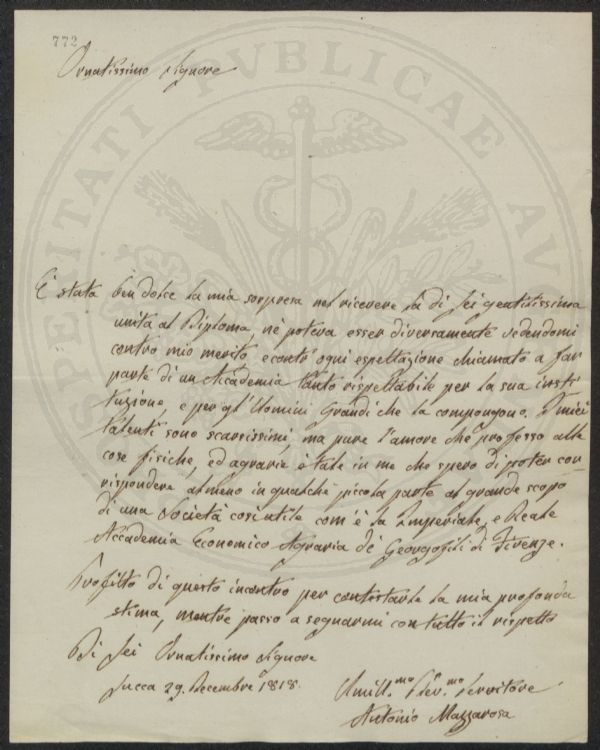 772
Ornatissimo Signore
È stata ben dolce la mia sorpresa nel ricevere la di Lei gentilissima
unita al Diploma, nè poteva esser diversamente vedendomi
contro mio merito, e contr' ogni espettazione chiamato a far
parte di un Accademia tanto rispettabile per la sua insti
tuzione, e per gl' Uomini Grandi che la compongono. I miei
talenti sono scarsissimi, ma pure l'amore che professo alle
cose fisiche, ed agrarie è tale in me che spero di poter cor-
rispondere almeno in qualche picola parte al grande scopo
di una Società così utile com' è la Imperiale, e Reale
Accademia Economico Agraria de' Georgofili di Firenze.
Profitto di questo incontro per contestarle la mia profonda
stima, mentre passo a segnarmi con tutto il rispetto
Di Lei Ornatissimo Signore
Lucca 29. Decembre 1818.
Umill.mo Dev.mo Servitore
Antonio Mazzarosa
PROSPERITATI PVBLICAE AVG